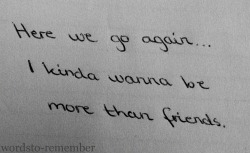 Here we go again...
I kinda wanna be
more than friends.
wordsto-remember